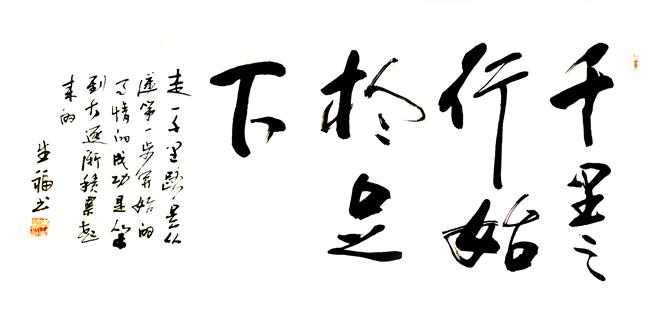 千里之
行始
於足
下
走一千里路是从
迈第一步开始的
事情的成功是从小
到大逐渐积累起
来的
生福书